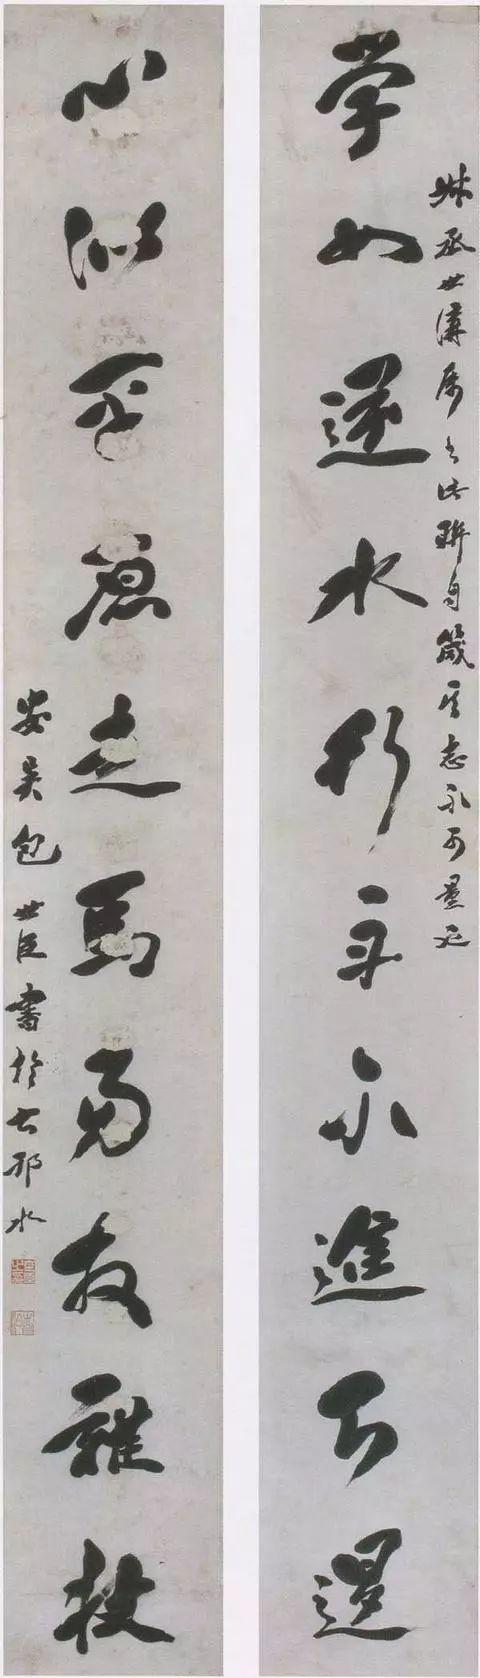 叔丞世講屬書此聯自箴其志不可量已
学如逆水行舟不進退
心似平原走馬易放難收
安吳包世臣書於古邗水